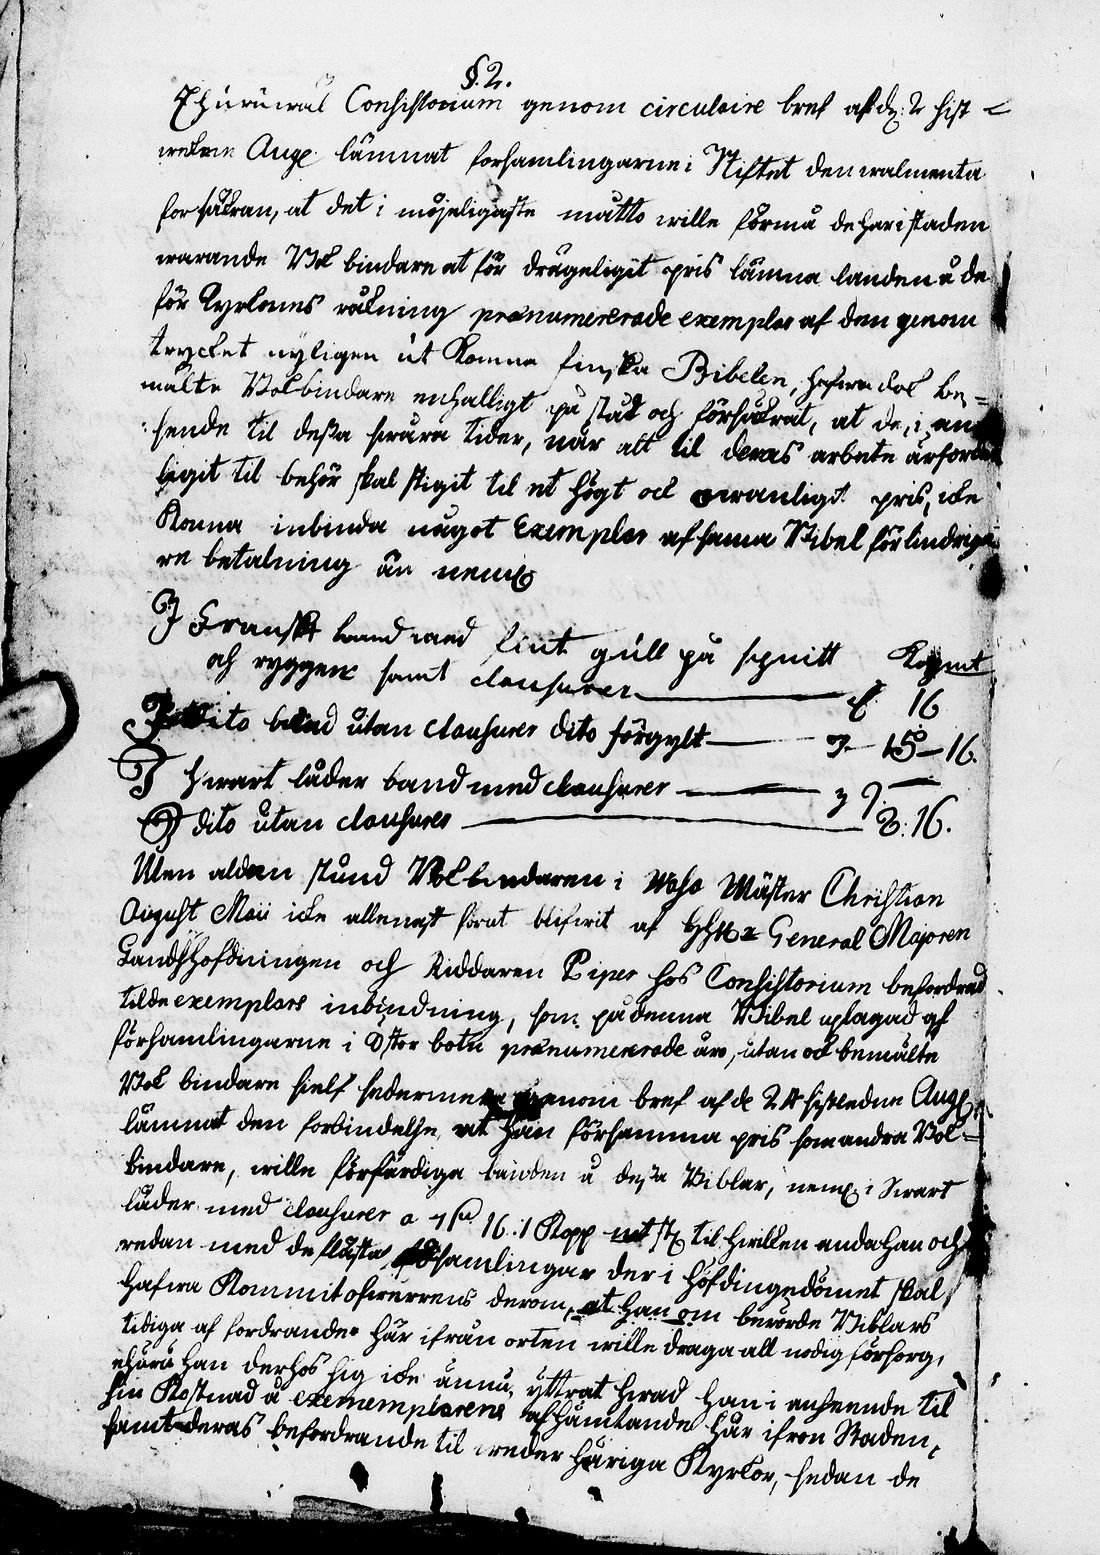 §. 2.
Ehuruwäl Consistorium genom circulaire bref af d: 2 sist-
wekne Aug. lämnat forsamlingarne i Stiftet den wälmenta
forsäkran, at det i möjeligaste måtto wille förmå de här i staden
warande Bok bindare at för drägeligit pris lämna banden å de
för Kyrkornes räkning prænumererade exemplar af den genom
trycket nyligen ut komna finska Bibelen, hafwa dock be-
mälte Bokbindare enhälligt på stådt och försäkrat, at de, i an
seende til dessa swåra tider, når alt til deras arbete ärforder
ligit til behör skal stigit til et högt och owanligit pris, icke
kunna inbinda något Exemplar af samma Bibel för lindriga
re betalning än neml
I Franskt band med fint gull på snitt Kopmt
och ryggen samt clausurer 16
I dito band utan clausurer dito förgylt 15-16.
I swart läder band med clausurer 9.
I dito utan clausurer 8:16.
Men aldenstund Bokbindaren i Wasa Mäster Christian
August Maii icke allenast förut blifwit af General Majoren
Landshöfdingen och Riddaren Piper hos Consistorium befordrad
til de exemplars inbindning, som på denna Bibel uplaga af
församlingarne i Öster botn prænumererade äro, utan och bemälte
Bok bindare sielf sedermera genom bref af de 24 sistledne Aug.
lämnat den forbindelse, at han för samma pris som andra Bok-
bindare, wille förfärdiga banden å dessa Biblar, neml i Swart
läder med clausurer a 16: Kopp mt st til hwilken ända han och
redan med de flästa församlingar der i höfdingedömet skal
hafwa kommit öfwerrens derom, at han om berörde Biblars
tidiga af fordrande här ifrån orten wille draga all nödig försorg,
ehuru han derhos sig icke ännu, yttrat hwad han i anseende til
sin kostnad å exememplarens afhämtande här ifron Staden,
samt deras befordrande til weder häriga Kyrkor, sedan de